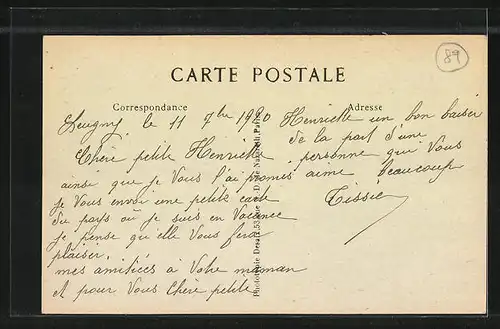 89
CARTE POSTALE
Correspondance
Adresse
Leugny, le 11 7bre 1920
Chère petite Henriette
ainsi que je Vous l'ai promis
je Vous envoi une petite carte
du pays où je suis en Vacance
je pense qu'elle Vous fera
plaisir.
mes amitiées à Votre maman
et pour Vous Chère petite
Henriette un bon baiser
de la part d'une
personne que Vous
aime beaucoup
Tissié